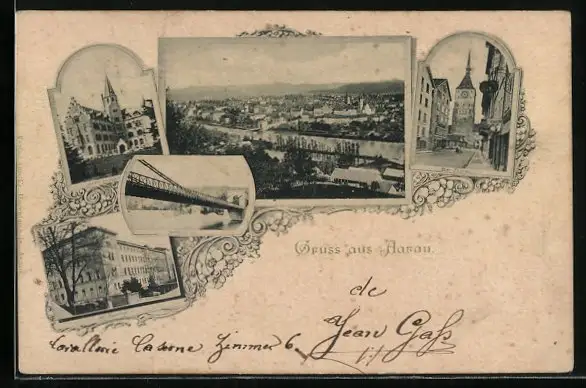 Gruss aus Aarau.
de
Jean Gaß
Cavallerie Caserne Zimmer 6